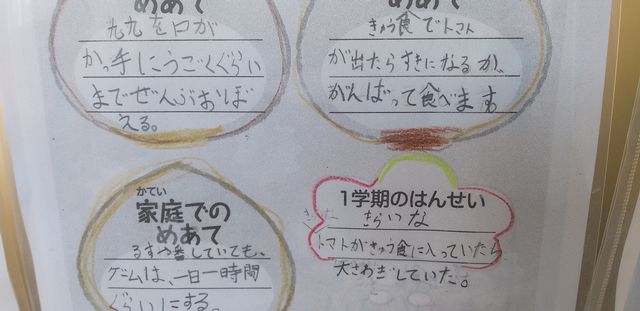 めあて
九九を口が
かっ手にうごくぐらい
までぜんぶおぼ
える。
めあて
きゅう食でトマト
が出たらすきになるか、
がんばって食べます
かてい
家庭での
めあて
るすや番していても、
ゲームは、一日一時間
ぐらいにする。
1学期のはんせい
きらいな
トマトがきゅう食に入っていたら
大さわぎしていた。